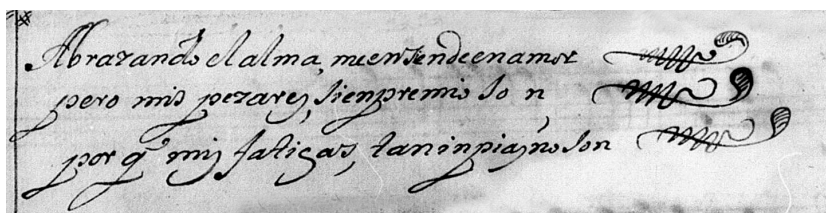 Abrazando el alma, me ensende en amor
pero mis pezares, sienpre mio so n
por q mis fatigas, tan inpias no son